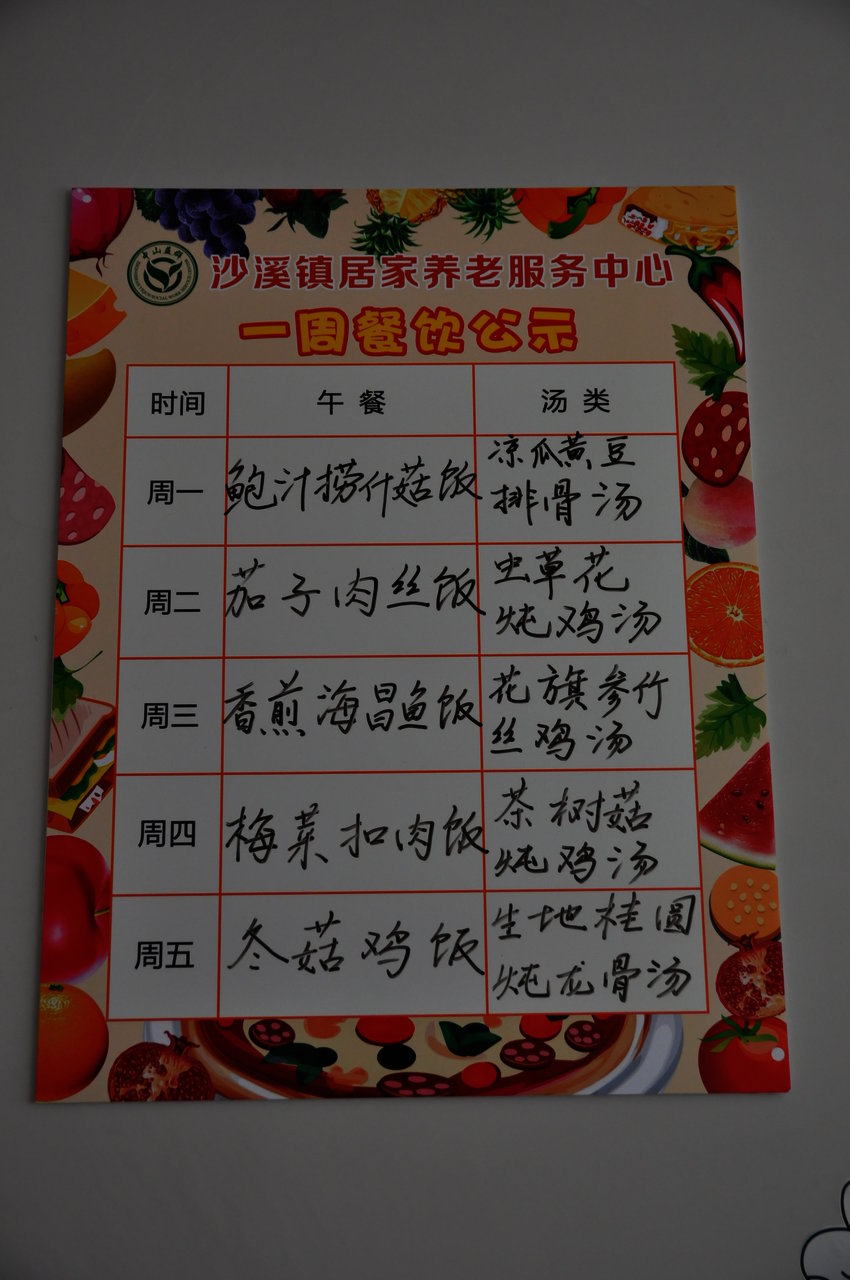 沙溪镇居家养老服务中心
一周餐饮公示
时间 午餐 汤类
周一 鲍汁捞什菇饭 凉瓜黄豆
排骨汤
周二 茄子肉丝饭 虫草花
炖鸡汤
周三 香煎海昌鱼饭 花旗参竹
丝鸡汤
周四 梅菜扣肉饭 茶树菇
炖鸡汤
周五 冬菇鸡饭 生地桂圆
炖龙骨汤